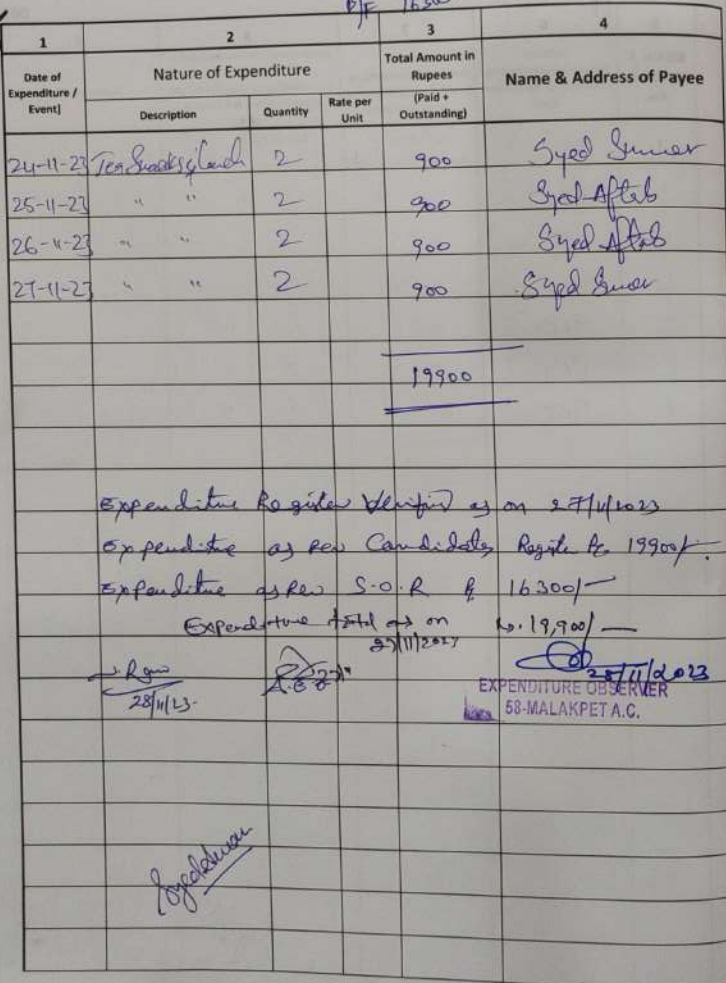 B/F 1630
1 2 3 4
Date of Expenditure / Event] Nature of Expenditure Total Amount in Rupees (Paid + Outstanding) Name & Address of Payee
Description Quantity Rate per Unit
24-11-23 Tea Snacks & Lunch 2 900 Syed
25-11-23 " " 2 900 Syed Aftab
26-11-23 " " 2 900 Syed Aftab
27-11-23 " " 2 900 Syed
19900
Expenditure Register Verified as on 27/11/2023
Expenditure as per Candidates Registe Rs 19900/-
Expenditure as per S.O.R Rs 16300/-
Expenditure total as on Rs. 19,900/-
27/11/2023
28/11/2023
28/11/23.
EXPENDITURE OBSERVER
58-MALAKPET A.C.